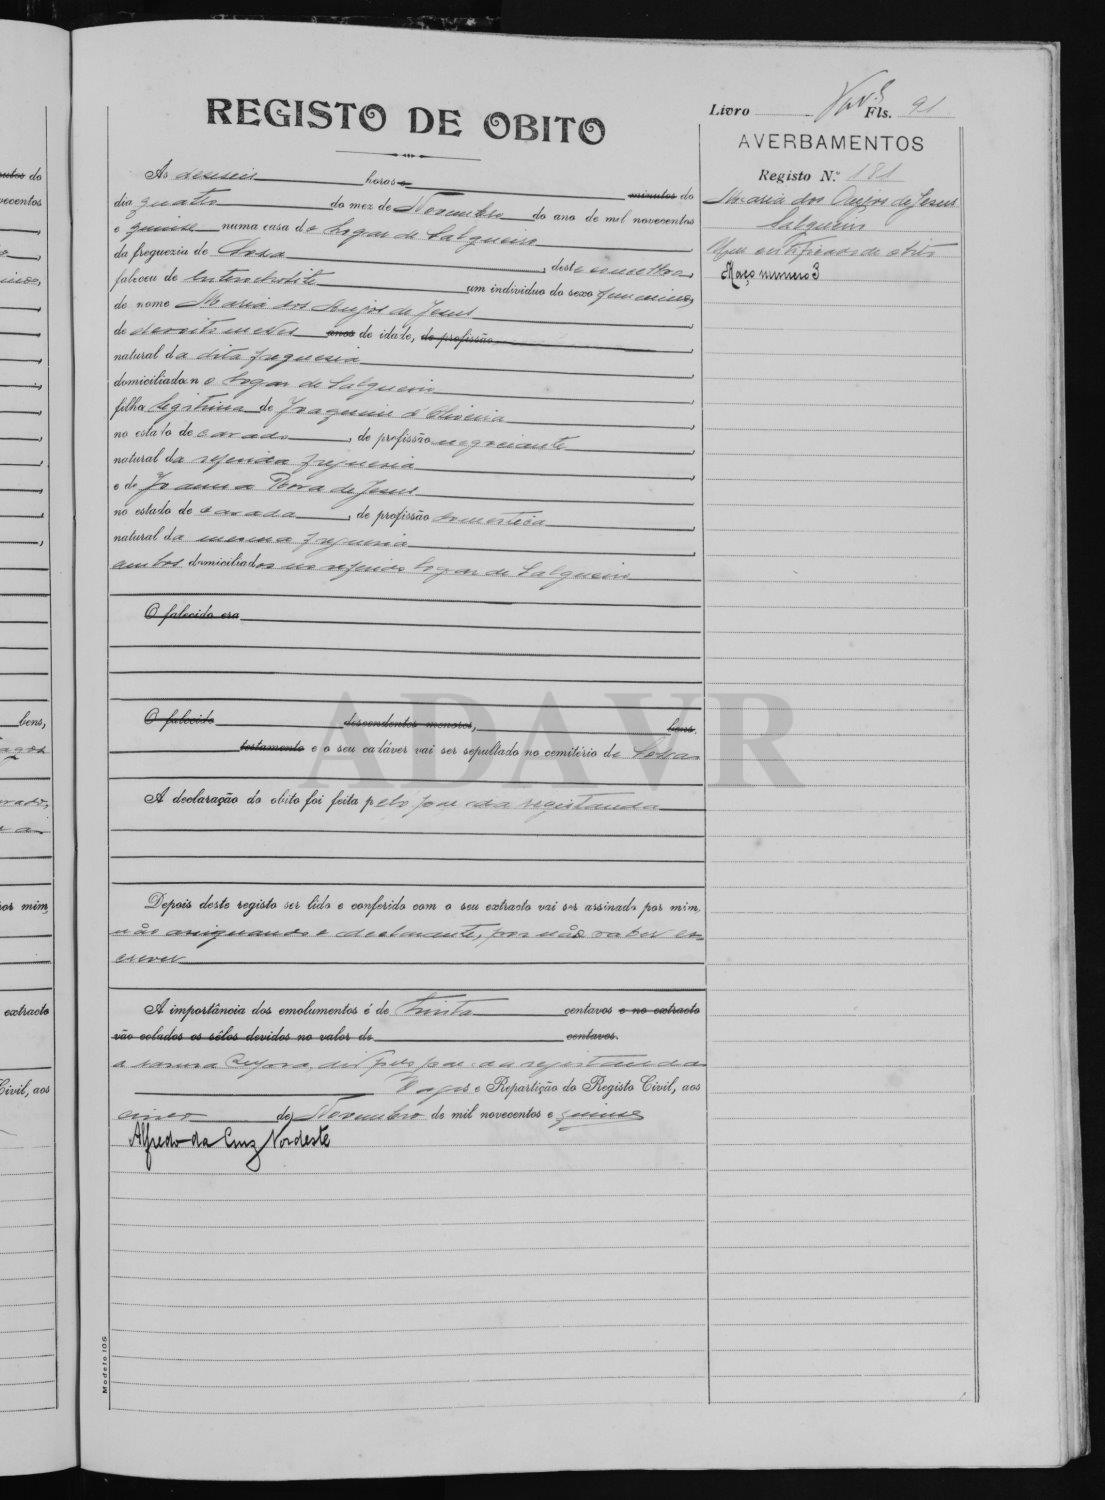 Livro Fls. 91
REGISTO DE OBITO
As deseseis horas e minutos do
dia quatro do mez de Novembro do ano de mil novecentos
e quinze numa casa do logar de Salgueiro
da freguezia de Sosa, deste concelho,
faleceu de enterocolite um individuo do sexo feminino,
de nome Maria dos Anjos de Jesus,
de dezoito meses anos de idade, de profissão,
natural da dita freguesia,
domiciliada no logar de Salgueiro,
filha legitima de Joaquim d'Oliveira,
no estado de casado, de profissão negociante,
natural da referida freguesia,
e de Joanna Rosa de Jesus,
no estado de casada, de profissão domestica,
natural da mesma freguesia,
ambos domiciliados no referido logar de Salgueiro
O falecido era
O falecido descendentes menores, bens,
testamento e o seu cadáver vai ser sepultado no cemitério de Sosa
A declaração do obito foi feita pelo pae da registanda
Depois deste registo ser lido e conferido com o seu extracto vai ser assinado por mim,
não assignando o declarante, por não saber es-
crever
A importância dos emolumentos é de trinta centavos e no extracto
vão colados os sêlos devidos no valor de centavos.
pelo pae da registanda
Vagos e Repartição do Registo Civil, aos
cinco de Novembro de mil novecentos e quinze
Alfredo da Cruz Nordeste
AVERBAMENTOS
Registo N.º 181
Maria dos Anjos de Jesus
Salgueiro
certificado de obito
Maço numero 3
ADAVR
Modelo 106
utos do
vecentos
bens,
por mim,
extracto
Civil, aos